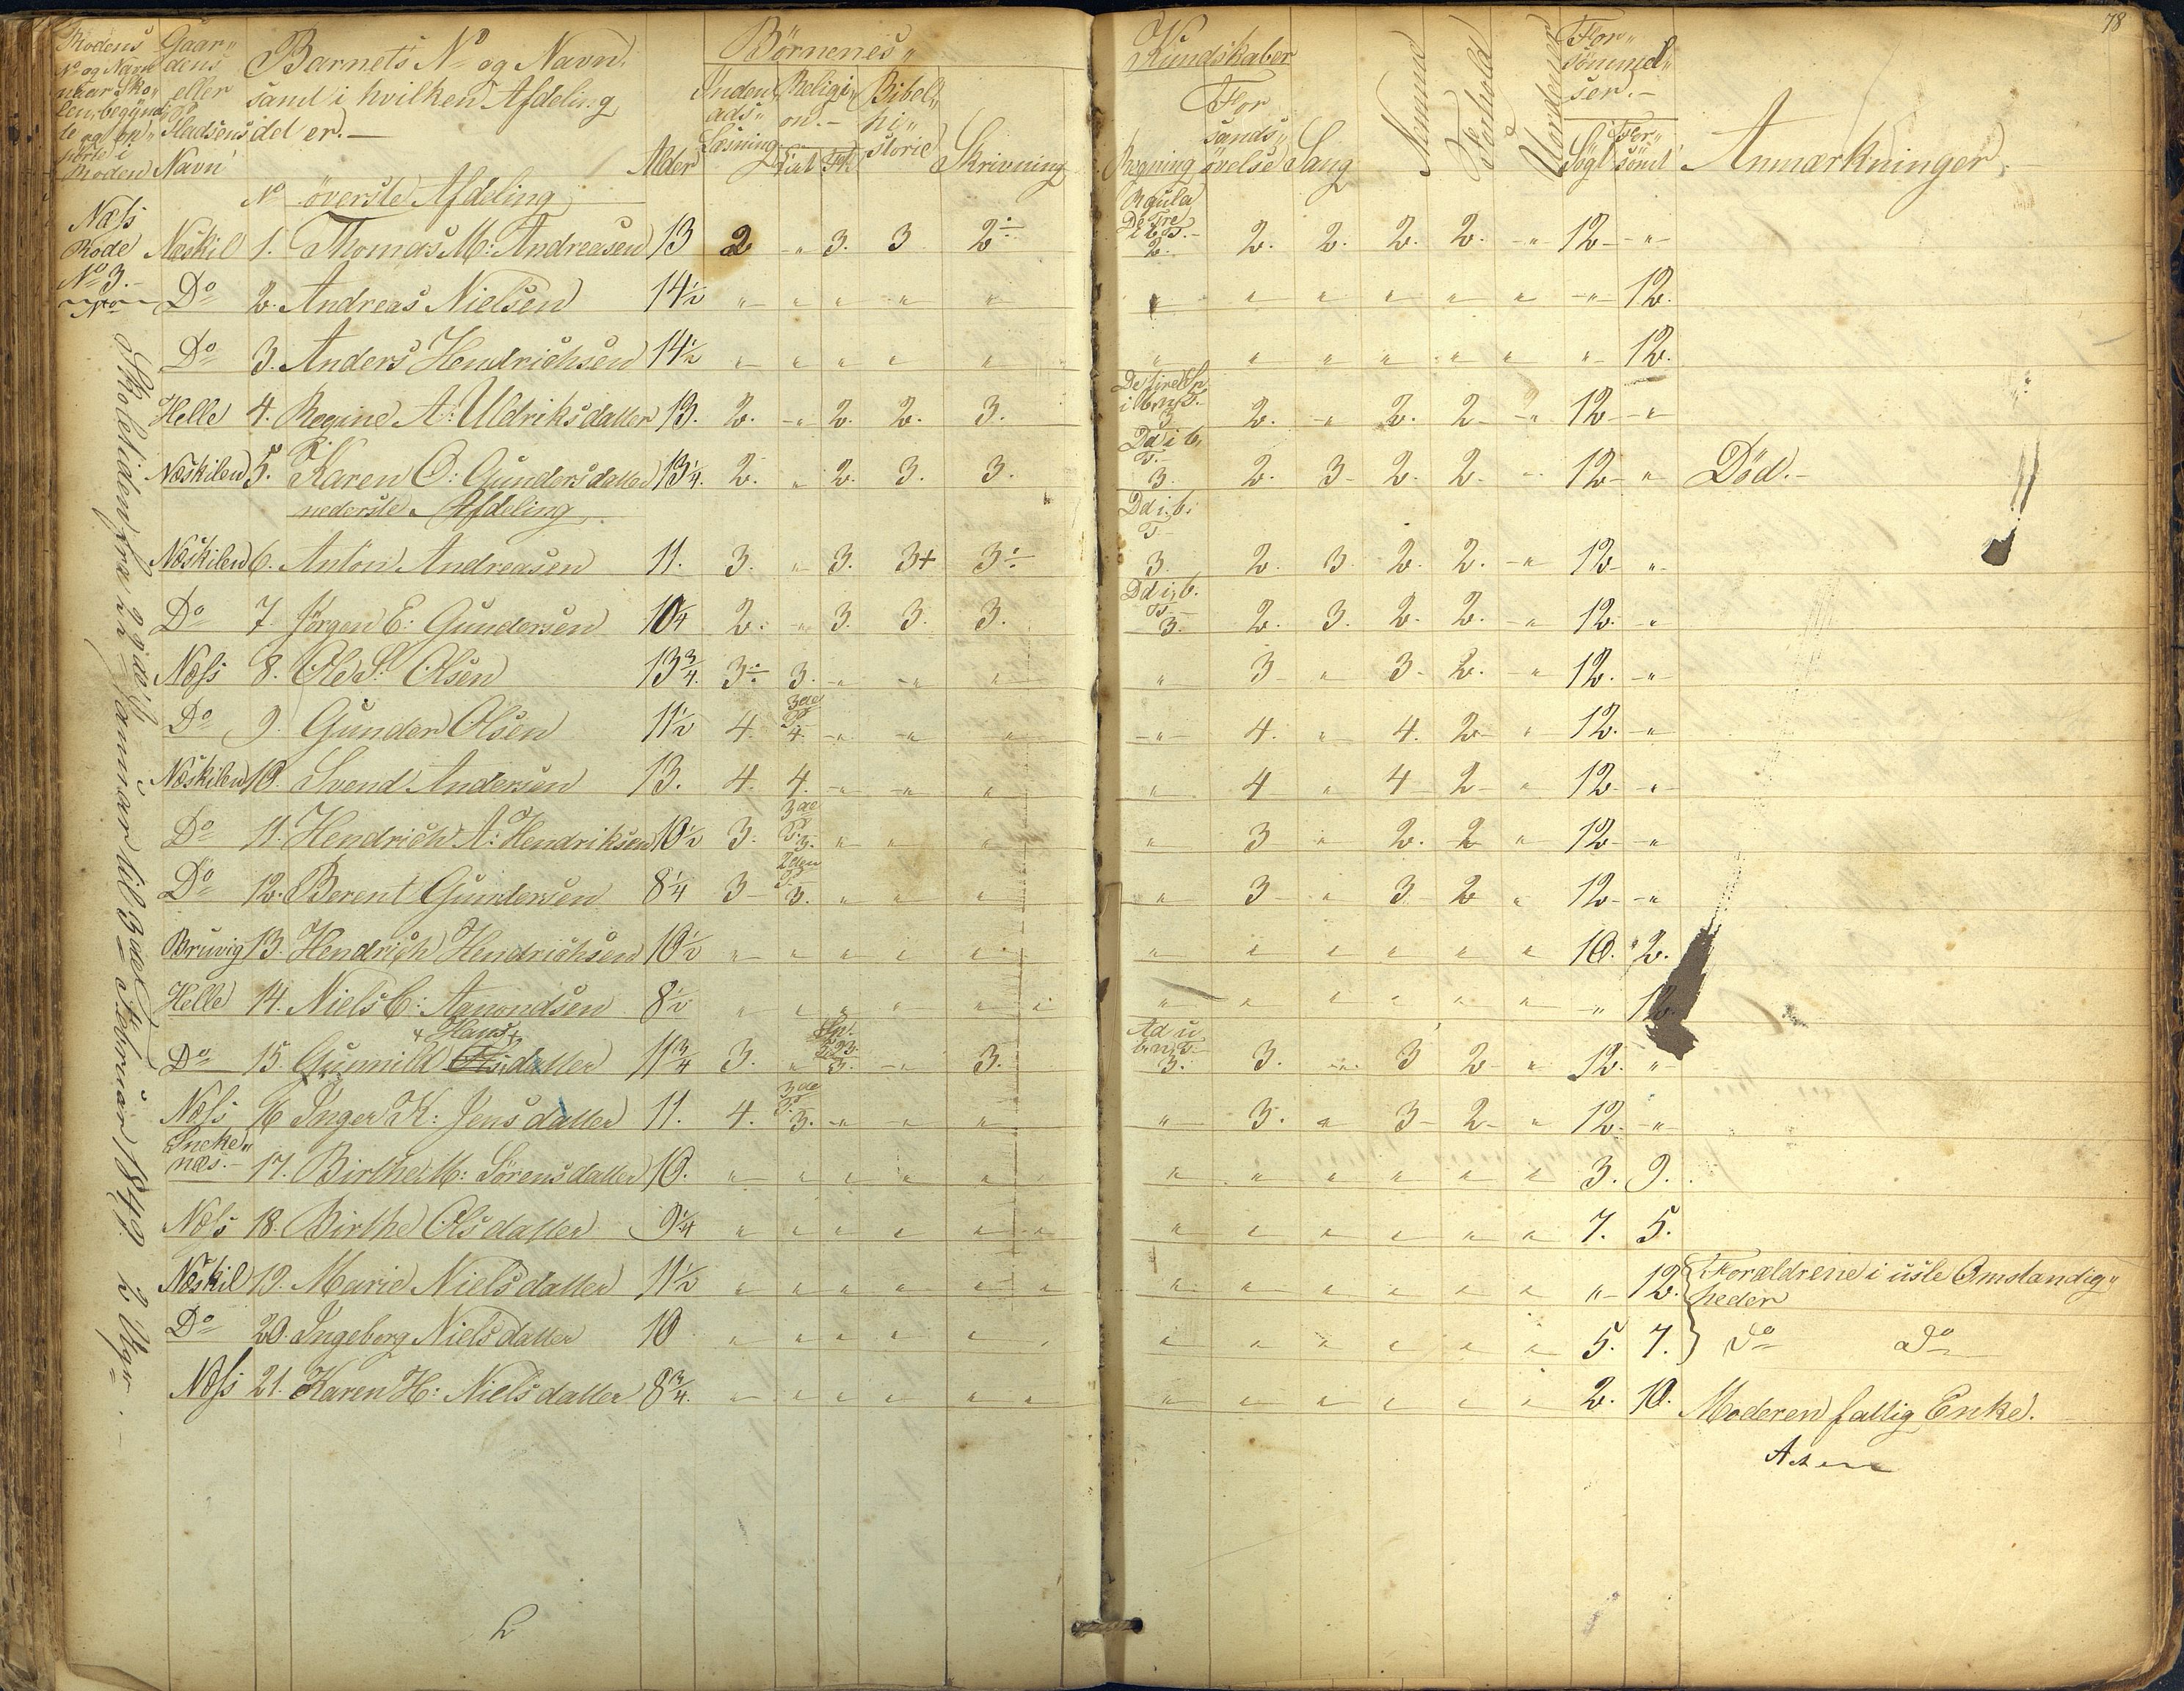 78
Rodens Gaar„ Barnets No og Navn, Börnenes„ Kundskaber For„
No og Navn dens samt i hvilken Afdeling sömmel„
naar Sko„ eller det er.— ser.—
len begynd„ Pladsens
te og
Roden Navn
Alder Inden„ads„ Læsning Religi„on.— Bibel„hi„storie Skrivning Regning For sands„ övelse Sang Nemme Forhold Sögt For„sömt Anmærkninger
No överste Afdeling
Næs Rode No 3.—
Skoletiden fra 22 Januar til 3 Februar 1849. 2 Uger.
Regula De Tre
Næskil 1. Thomas M: Andreasen 13 2 „ 3. 3 2÷ 2. 2. 2. 2. 2. „ 12 „
Do 2. Andreas Nielsen 14½ „ „ „ „ „ „ „ „ „ „ „ „ 12.
Do 3. Anders Hendrichsen 14½ „ „ „ „ „ „ „ „ „ „ „ „ 12.
Helle 4. Regine A: Uldriksdatter 13. 2. „ 2. 2. 3. 3 2. „ 2. 2 „ 12 „
Næskilen 5. Karen O: Gundersdatter 13¼. 2. „ 2. 3. 3. 3. 2. 3 2. 2. „ 12 „ Död.—
nederste Afdeling
Næskilen 6. Anton Andreasen 11. 3. „ 3. 3+ 3÷ 3. 2. 3. 2. 2. „ 12 „
Do 7. Jörgen E: Gundersen 10¼ 2. „ 3. 3. 3. 3. 2. 3. 2. 2. „ 12. „
Næss 8. Ole S: Olsen 13¾. 3÷ 3. „ „ „ „ 3 „ 3 2. „ 12. „
Do 9. Gunder Olsen 11½ 4. 4. „ „ „ „ 4. „ 4. 2 „ 12. „
Næskilen 10. Svend Andersen 13. 4. 4. „ „ „ „ 4 „ 4 2 „ 12. „
Do 11. Hendrich A: Hendriksen 10½ 3. 3. „ „ „ „ 3 „ 2. 2 „ 12 „
Do 12. Berent Gundersen 8¼ 3 3. „ „ „ „ 3 „ 3 2 „ 12 „
Bruvig 13. Hendrich Hendrichsen 10½ „ „ „ „ „ „ „ „ „ „ „ 10. 2.
Helle 14. Niels C: Aamondsen 8½ „ „ „ „ „ „ „ „ „ „ „ „ 12
+ Hans+
Do 15. Gunnild Olsdatter 11¾ 3. „ 3. „ 3. 3. 3. „ 3 2 „ 12. „
Næss 16 Inger K: Jensdatter 11. 4. 3. „ „ „ „ 3. „ 3 2 „ 12. „
Sneke„
næs.— 17. Birthe M: Sörensdatter 10. „ „ „ „ „ „ „ „ „ „ „ 3. 9.
Næs 18. Birthe Olsdatter 9¼ „ „ „ „ „ „ „ „ „ „ „ 7. 5.
Næskil 19. Marie Nielsdatter 11½ „ „ „ „ „ „ „ „ „ „ „ „ 12. Forældrene i usle Omstændig„
heder
Do 20. Ingeborg Nielsdatter 10 „ „ „ „ „ „ „ „ „ „ „ 5. 7. Do Do
Næss 21. Karen H: Nielsdatter 8¾. „ „ „ „ „ „ „ „ „ „ „ 2. 10. Moderen fattig Enke.